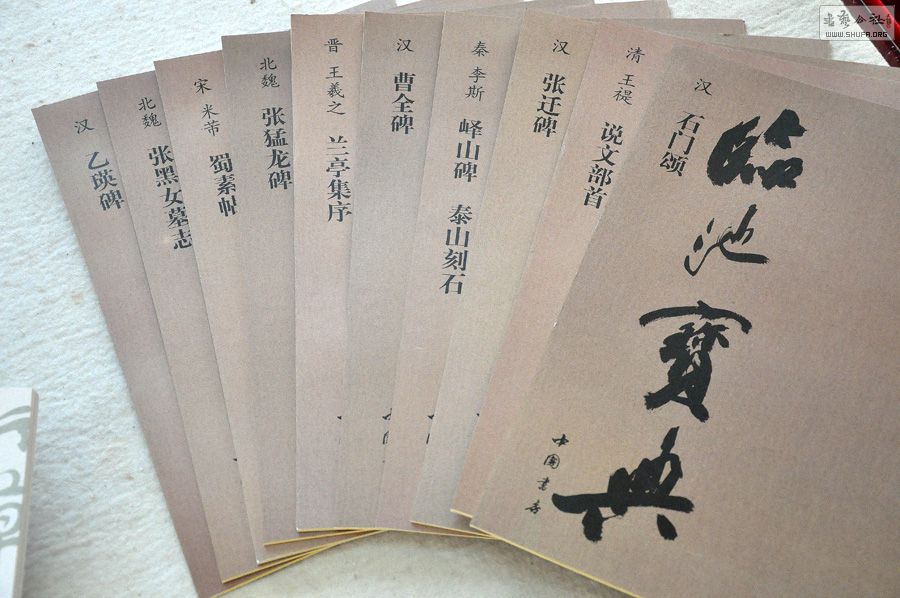 汉 乙瑛碑
北魏 张黑女墓志
宋 米芾 蜀素帖
北魏 张猛龙碑
晋 王羲之 兰亭集序
汉 曹全碑
秦 李斯 峄山碑 泰山刻石
汉 张迁碑
清 王禔 说文部首
汉 石门颂
臨池寶典
中国书店
WWW.SHUFA.ORG